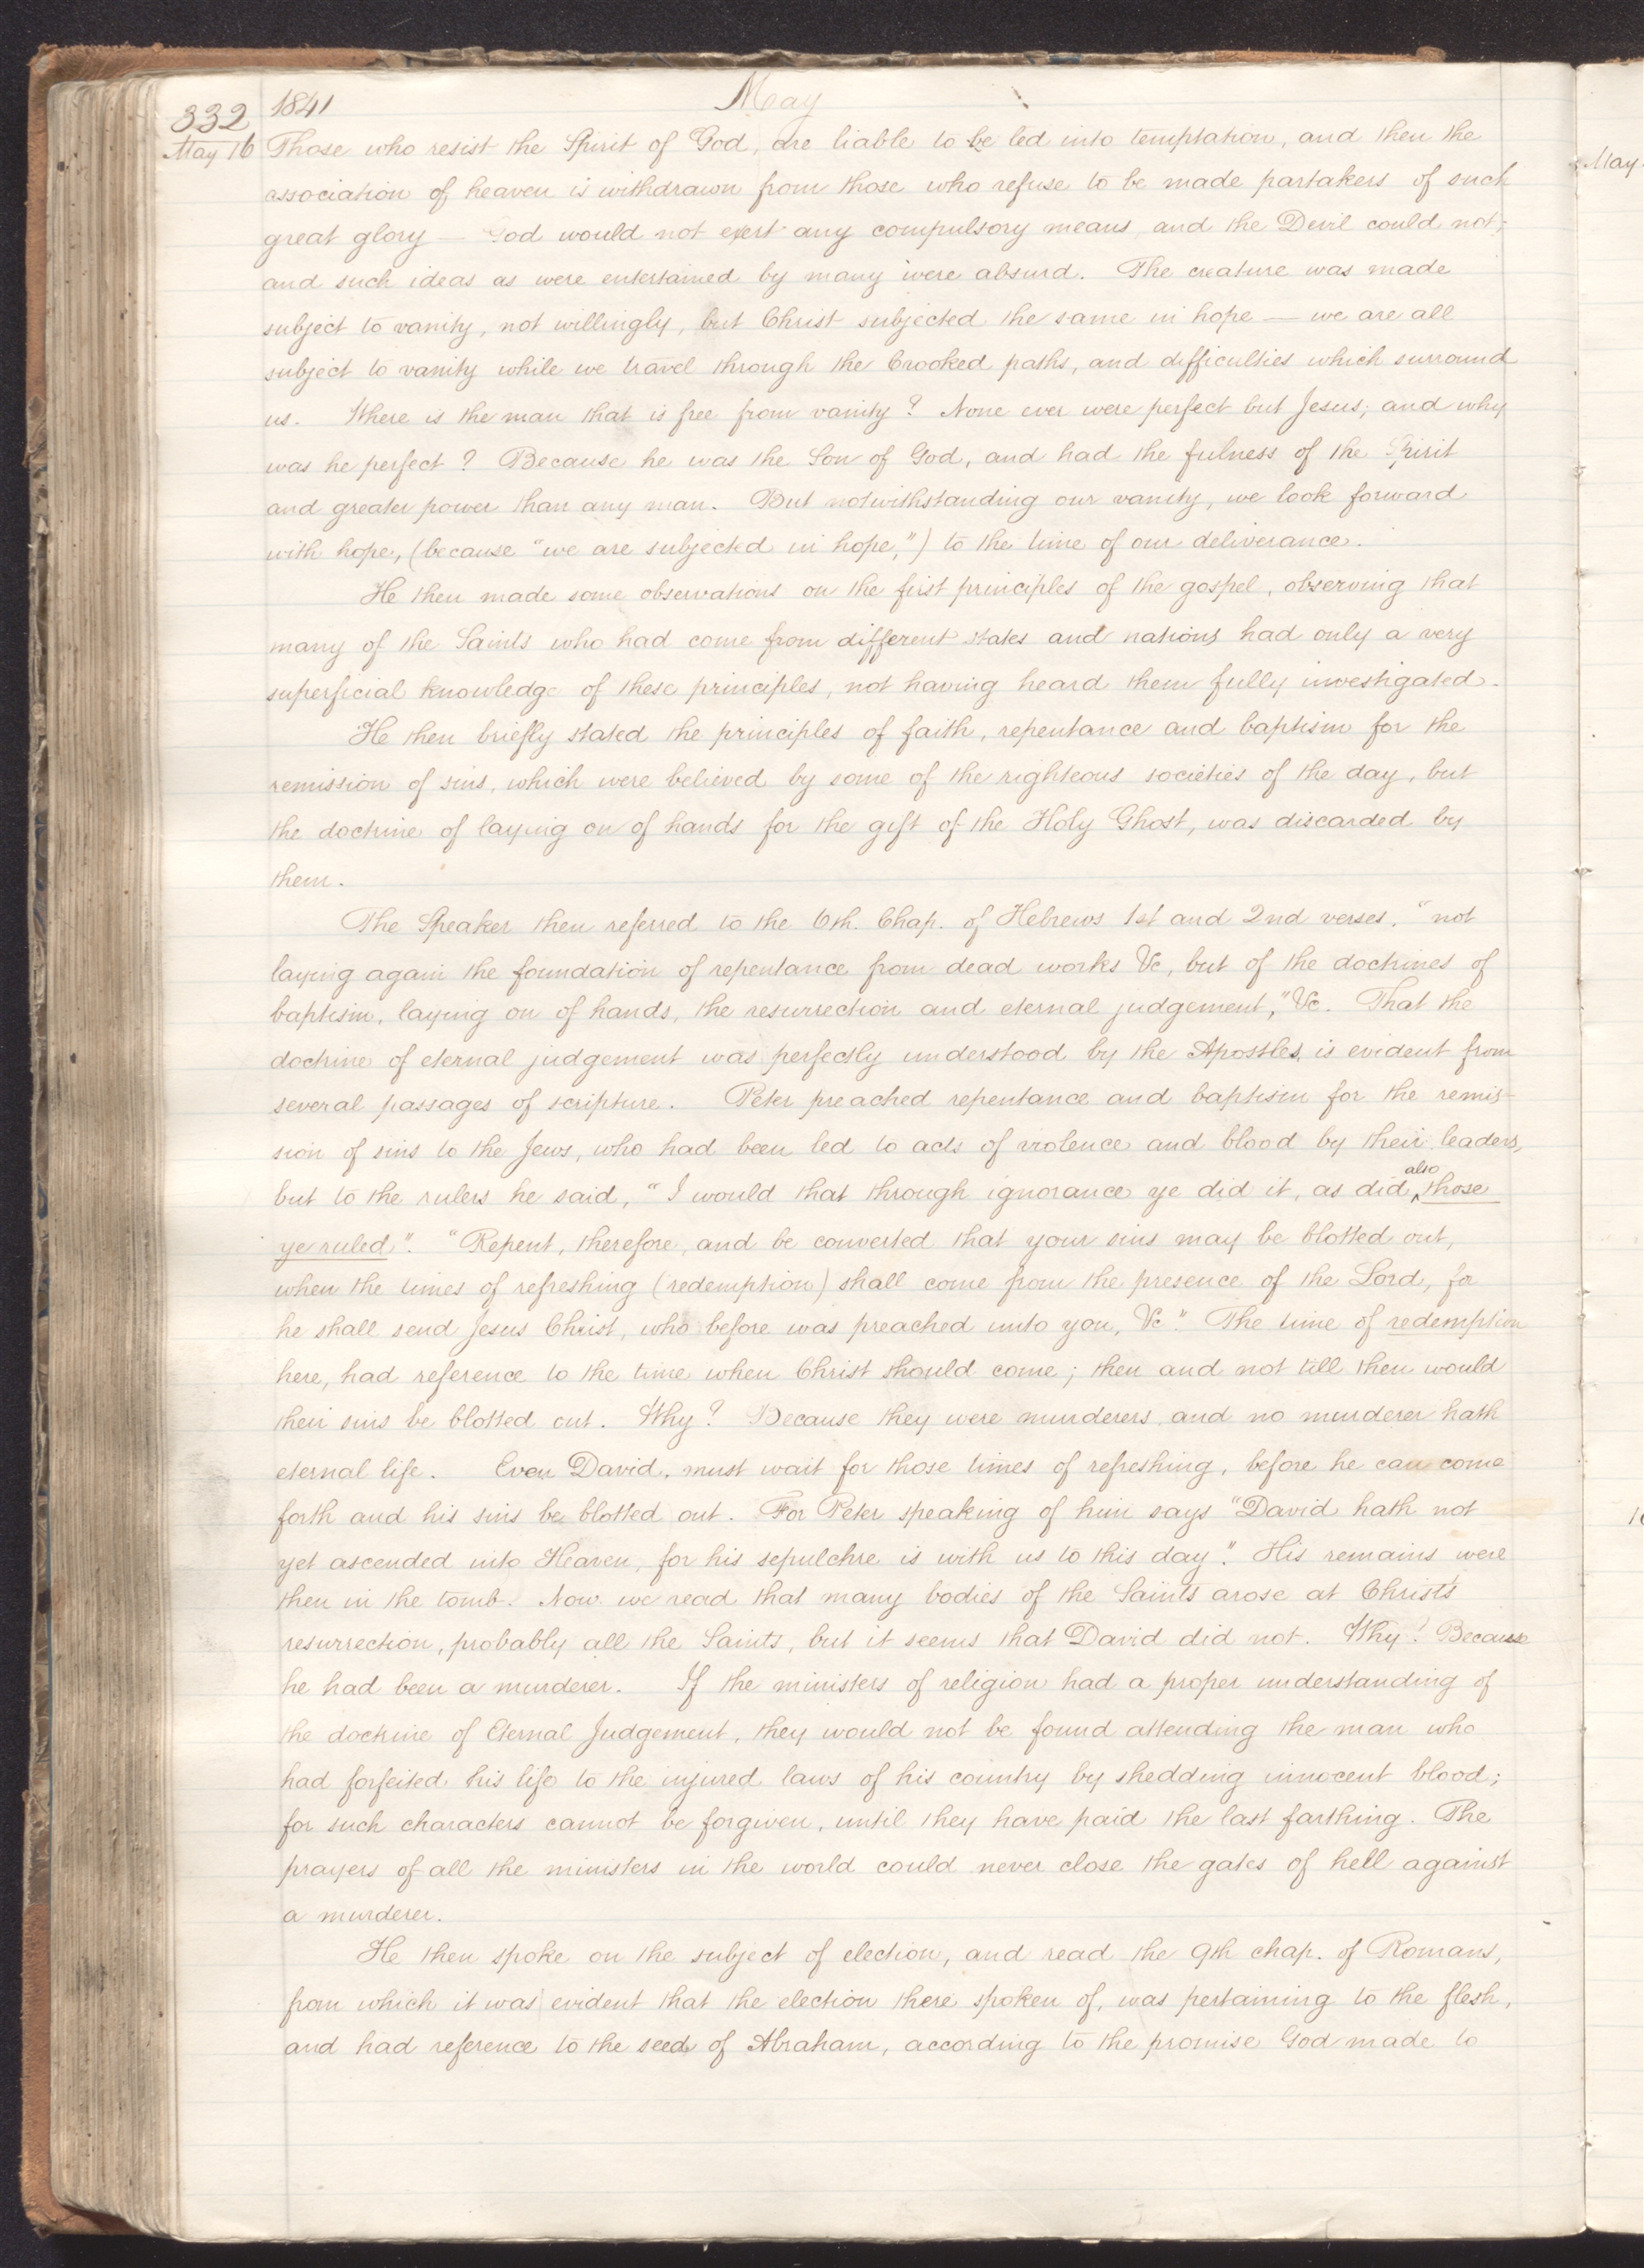 332 1841 May
May 16 Those who resist the Spirit of God, are liable to be led into temptation, and then the
association of heaven is withdrawn from those who refuse to be made partakers of such
great glory — God would not exert any compulsory means and the Devil could not;
and such ideas as were entertained by many were absurd. The creature was made
subject to vanity, not willingly, but Christ subjected the same in hope — we are all
subject to vanity while we travel through the Crooked paths, and difficulties which surround
us. Where is the man that is free from vanity? None ever were perfect but Jesus; and why
was he perfect? Because he was the Son of God, and had the fulness of the Spirit
and greater power than any man. But notwithstanding our vanity, we look forward
with hope, (because "we are subjected in hope,") to the time of our deliverance.
He then made some observations on the first principles of the gospel, observing that
many of the Saints who had come from different states and nations had only a very
superficial knowledge of these principles, not having heard them fully investigated.
He then briefly stated the principles of faith, repentance and baptism for the
remission of sins, which were believed by some of the righteous societies of the day, but
the doctrine of laying on of hands for the gift of the Holy Ghost, was discarded by
them.
The Speaker then referred to the 6th. Chap. of Hebrews 1st and 2nd verses. "not
laying again the foundation of repentance from dead works &c, but of the doctrines of
baptism, laying on of hands, the resurrection and eternal judgement," &c. That the
doctrine of eternal judgement was perfectly understood by the Apostles, is evident from
several passages of scripture. Peter preached repentance and baptism for the remis-
sion of sins to the Jews, who had been led to acts of violence and blood by their leaders,
but to the rulers he said, "I would that through ignorance ye did it, as did also those
ye ruled". "Repent, therefore, and be converted that your sins may be blotted out,
when the times of refreshing (redemption) shall come from the presence of the Lord, for
he shall send Jesus Christ, who before was preached unto you, &c". The time of redemption
here, had reference to the time when Christ should come; then and not till then would
their sins be blotted out. Why? Because they were murderers, and no murderer hath
eternal life. Even David, must wait for those times of refreshing, before he can come
forth and his sins be blotted out. For Peter speaking of him says "David hath not
yet ascended into Heaven, for his sepulchre is with us to this day". His remains were
then in the tomb. Now we read that many bodies of the Saints arose at Christ's
resurrection, probably all the Saints, but it seems that David did not. Why? Because
he had been a murderer. If the ministers of religion had a proper understanding of
the doctrine of Eternal Judgement, they would not be found attending the man who
had forfeited his life to the injured laws of his country by shedding innocent blood;
for such characters cannot be forgiven, until they have paid the last farthing. The
prayers of all the ministers in the world could never close the gates of hell against
a murderer.
He then spoke on the subject of election, and read the 9th chap. of Romans,
from which it was evident that the election there spoken of, was pertaining to the flesh,
and had reference to the seed of Abraham, according to the promise God made to
May